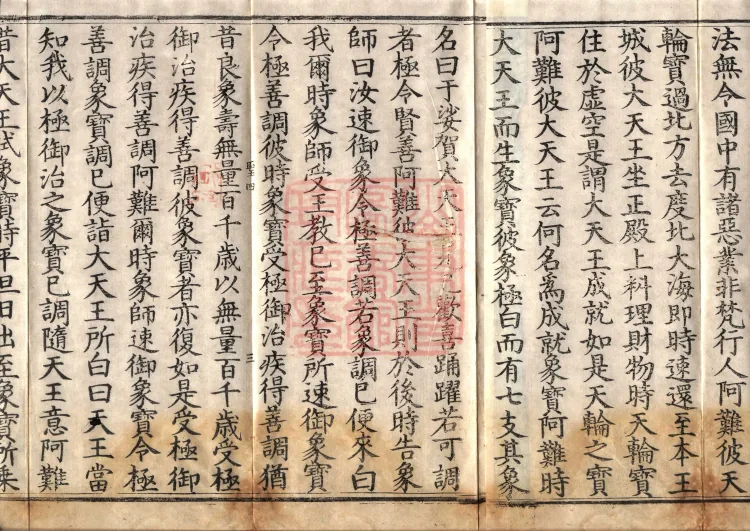 法無令國中有諸惡業非梵行人阿難彼天
輪寶過北方去度北大海即時速還至本王
城彼大天王坐正殿上料理財物時天輪寶
住於虛空是謂大天王成就如是天輪之寶
阿難彼大天王云何名為成就象寶阿難時
大天王而生象寶彼象極白而有七支其象
名曰于娑賀大天王見已歡喜踊躍若可調
者極令賢善阿難彼大天王則於後時告象
師曰汝速御象令極善調若象調已便來白
我爾時象師受王教已至象寶所速御象寶
令極善調彼時象寶受極御治疾得善調猶
聖四
三
昔良象壽無量百千歲以無量百千歲受極
御治疾得善調彼象寶者亦復如是受極御
治疾得善調阿難爾時象師速御象寶令極
善調象寶調已便詣大天王所白曰天王當
知我以極御治之象寶已調隨天王意阿難
昔大天王試象寶時平旦日出至象寶所乘